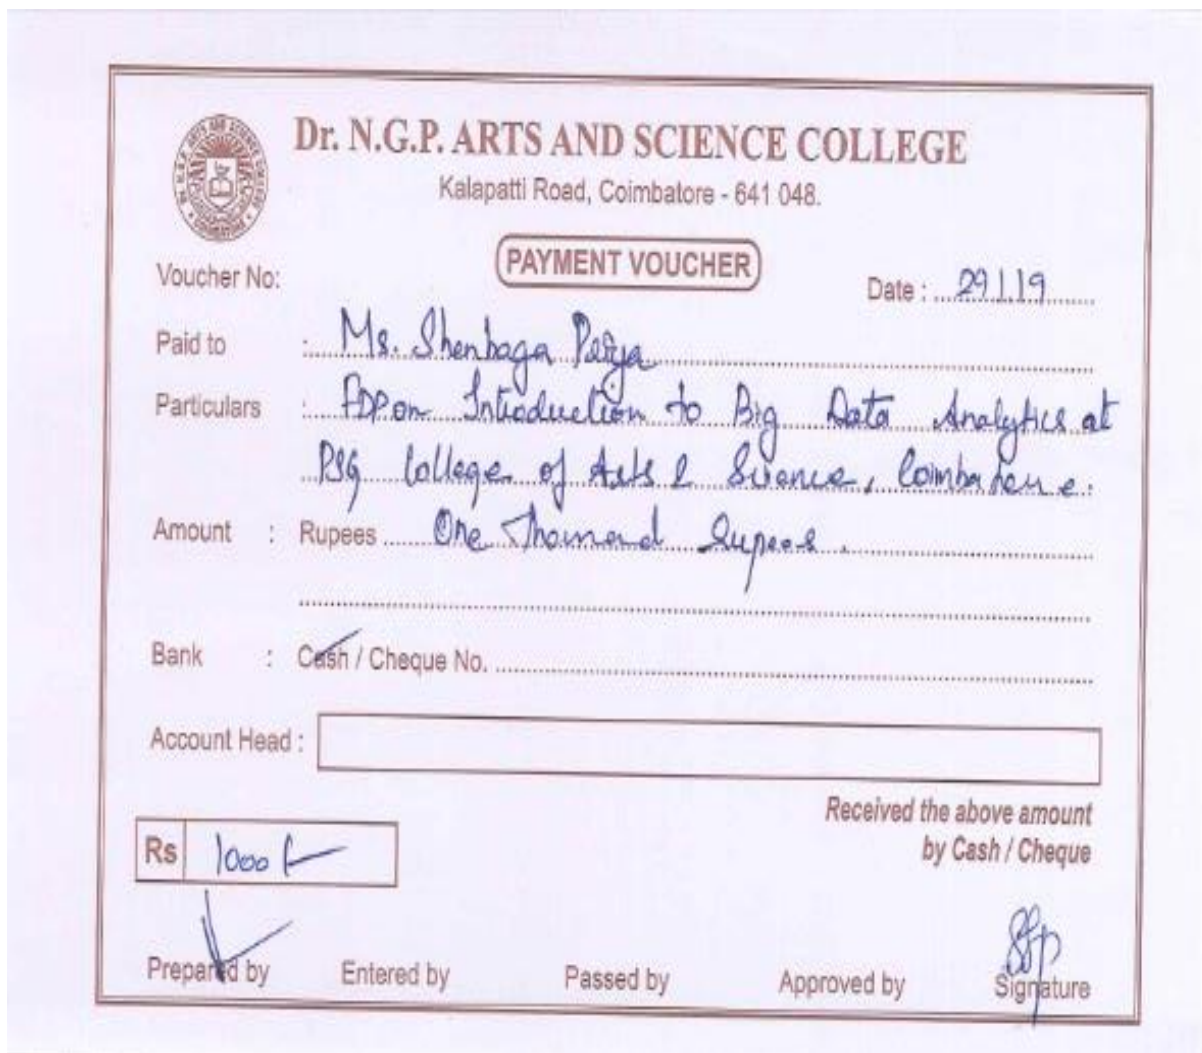 Dr. N.G.P. ARTS AND SCIENCE COLLEGE
Kalapatti Road, Coimbatore - 641 048.
PAYMENT VOUCHER
Voucher No:
Date : 29.1.19
Paid to : Ms. Shenbaga Priya
Particulars : FDP on Introduction to Big Data Analytics at
PSG College of Arts & Science, Coimbatore.
Amount : Rupees One Thousand Rupees.
Bank : Cash / Cheque No.
Account Head :
Received the above amount
by Cash / Cheque
Rs 1000/-
Prepared by Entered by Passed by Approved by Signature